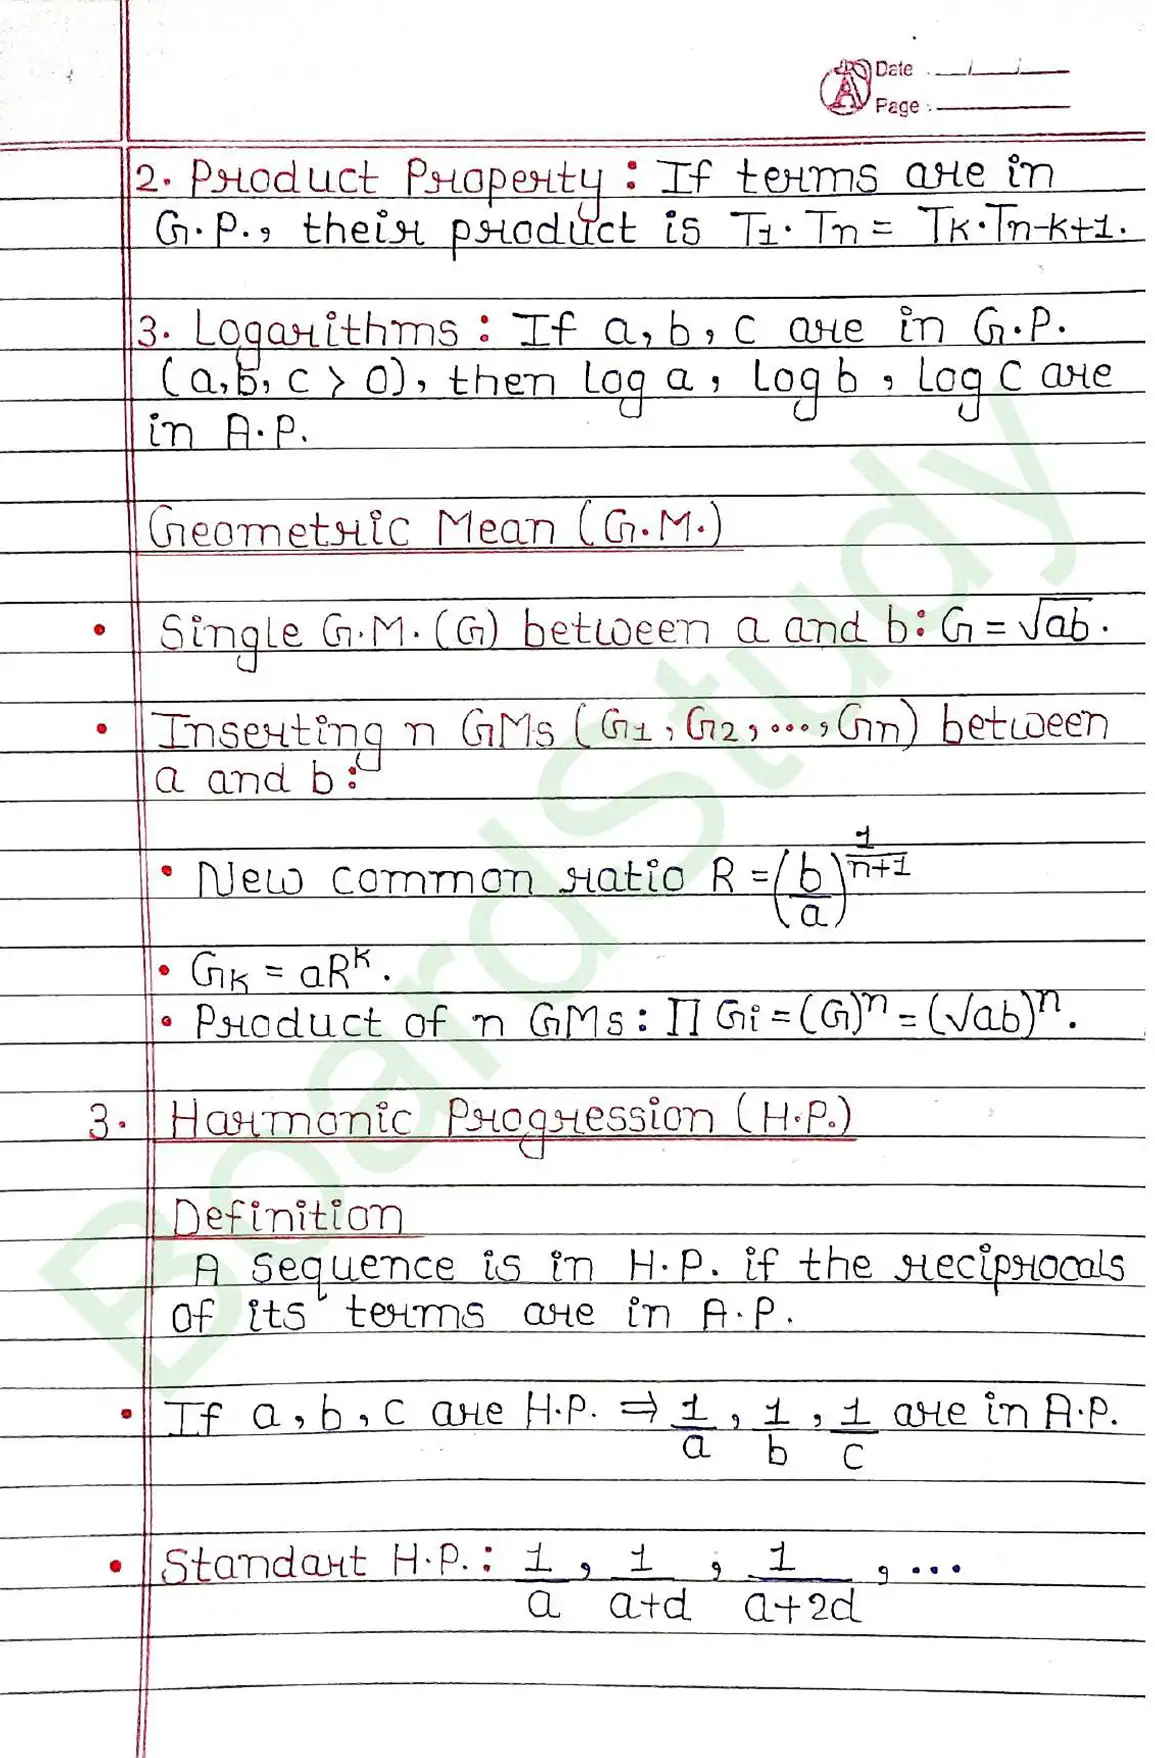 Date
Page
2. Product Property : If terms are in
G.P., their product is T₁·Tₙ = Tₖ·Tₙ₋ₖ₊₁.
3. Logarithms : If a, b, c are in G.P.
(a, b, c > 0), then log a, log b, log c are
in A.P.
Geometric Mean (G.M.)
• Single G.M. (G) between a and b: G = √ab.
• Inserting n GMs (G₁, G₂, ..., Gₙ) between
a and b:
• New common ratio R = (b/a)^(1/(n+1))
• Gₖ = aRᵏ.
• Product of n GMs: ∏ Gi = (G)ⁿ = (√ab)ⁿ.
3. Harmonic Progression (H.P.)
Definition
A sequence is in H.P. if the reciprocals
of its terms are in A.P.
• If a, b, c are H.P. ⇒ 1/a, 1/b, 1/c are in A.P.
• Standart H.P.: 1/a, 1/(a+d), 1/(a+2d), ...
BoardStudy